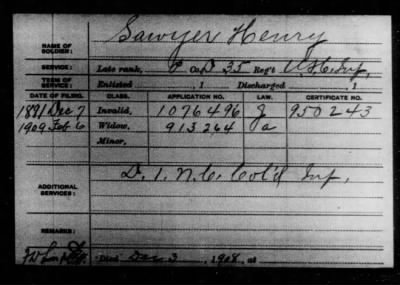 Sawyer Henry
NAME OF SOLDIER:
SERVICE: Late rank, P Co. D 35 Reg't U.S.C. Inf.
TERM OF SERVICE: Enlisted , 1 Discharged , 1
DATE OF FILING. CLASS. APPLICATION NO. LAW. CERTIFICATE NO.
1891 Dec 7 Invalid, 1076496 J 950243
1909 Feb 6 Widow, 913264 a
Minor,
ADDITIONAL SERVICES: D. 1. N.C. Col'd Inf.
REMARKS:
Died Dec 3 1908, at